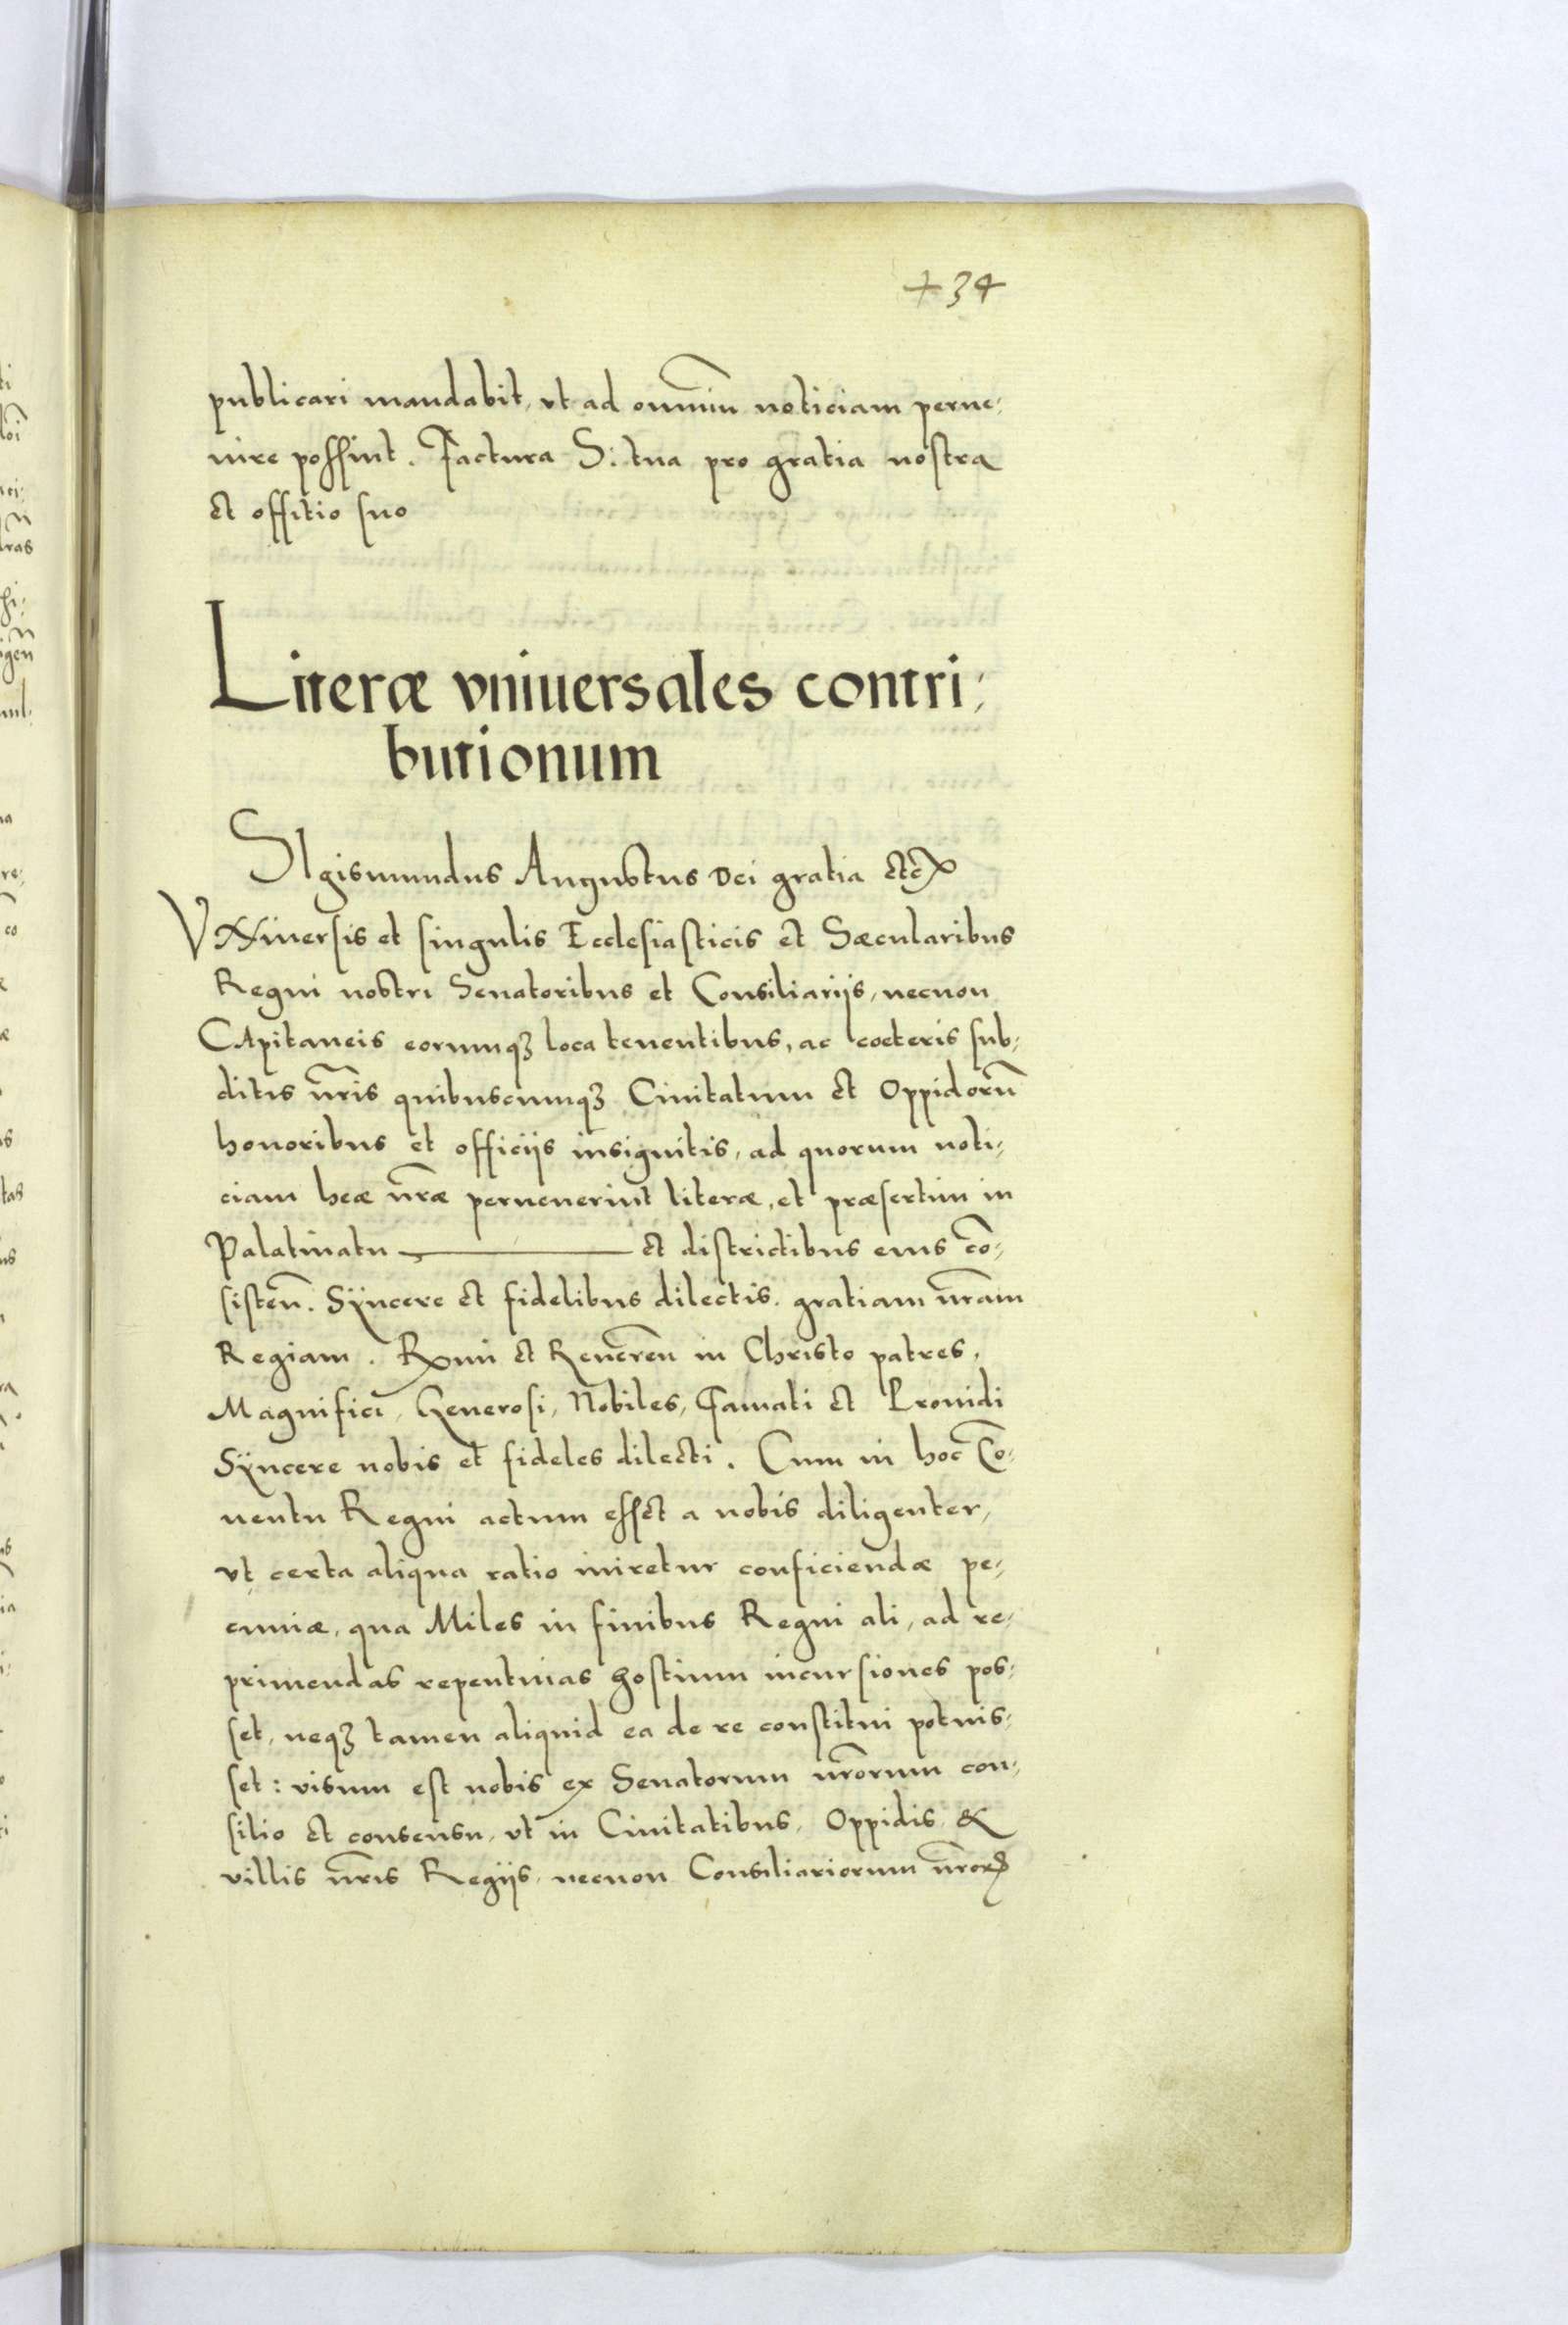 + 34
publicari mandabit, vt ad omniũ noticiam perue:
nire possint. Factura S: tua pro gratia nostra
et offitio suo
Literæ vniuersales contri:
butionum
SIgismundus Augustus Dei gratia etc
VNiuersis et singulis Ecclesiasticis et Sæcularibus
Regni nostri Senatoribus et Consiliarijs, necnon
CApitaneis eorumqꝫ loca tenentibus, ac coeteris sub:
ditis nr̃is quibuscumqꝫ Ciuitatum et Oppidorũ
honoribus et officijs insignitis, ad quorum noti:
ciam heæ nr̃æ peruenerint literæ, et præsertim in
Palatinatu ——— et districtibus eius cõ:
sisteñ. Sÿncere et fidelibus dilectis. gratiam nr̃am
Regiam. Rxmi et Reuereñ in Christo patres,
Magnifici, Generosi, Nobiles, Famati et Prouidi
Sÿncere nobis et fideles dilecti. Cum in hoc Cõ:
uentu Regni actum esset a nobis diligenter,
vt certa aliqua ratio iniretur conficiendæ pe:
cuniæ, qua Miles in finibus Regni ali, ad re:
primendas repentinas hostium incursiones pos:
set, neqꝫ tamen aliquid ea de re constitui potuis:
set: visum est nobis ex Senatorum nr̃orum con:
silio et consensu, vt in Ciuitatibus, Oppidis, &
villis nr̃is Regijs, necnon Consiliariorum nr̃oꝝ